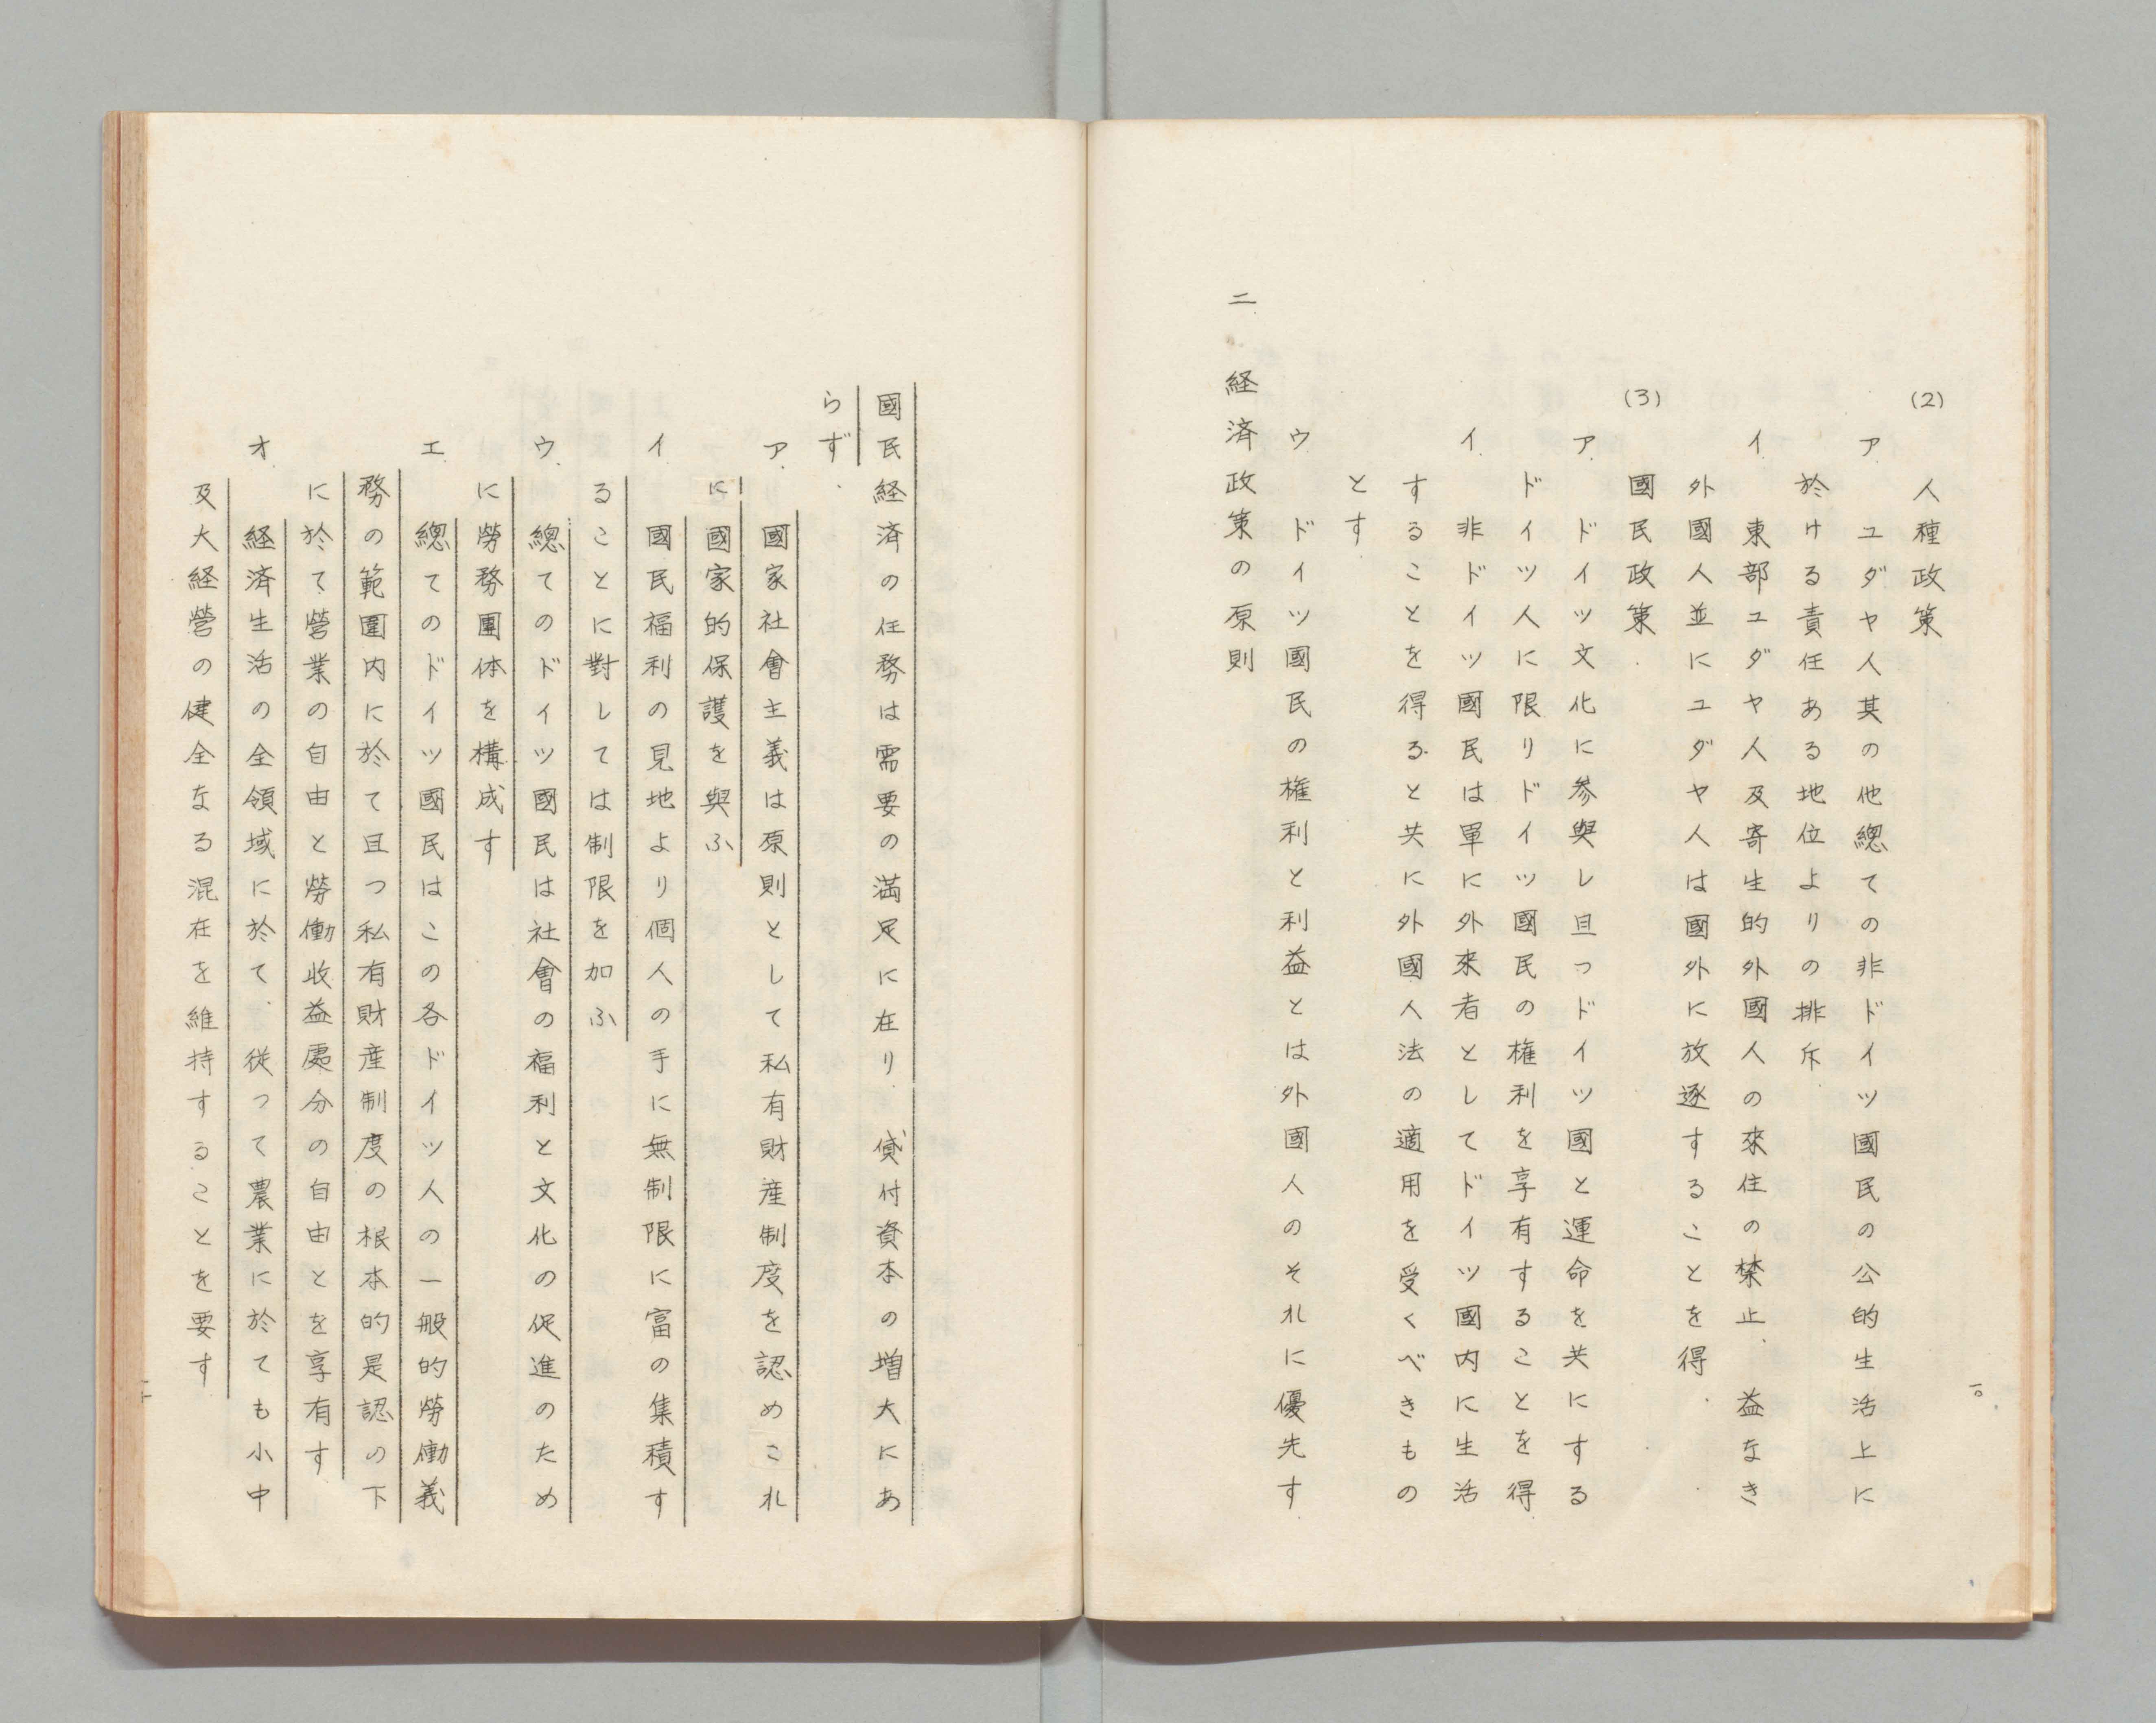 (2) 人種政策
ア. ユダヤ人其の他總ての非ドイツ國民の公的生活上に
於ける責任ある地位よりの排斥
イ. 東部ユダヤ人及寄生的外國人の來住の禁止、益なき
外國人並にユダヤ人は國外に放逐することを得
(3) 國民政策
ア. ドイツ文化に参與し且つドイツ國と運命を共にする
ドイツ人に限りドイツ國民の権利を享有することを得
イ. 非ドイツ國民は單に外來者としてドイツ國内に生活
することを得ると共に外國人法の適用を受くべきもの
とす
ウ. ドイツ國民の権利と利益とは外國人のそれに優先す
二. 経済政策の原則
一〇
國民経済の任務は需要の満足に在り 貸付資本の増大にあ
らず.
ア. 國家社會主義は原則として私有財産制度を認めこれ
に國家的保護を與ふ
イ. 國民福利の見地より個人の手に無制限に富の集積す
ることに對しては制限を加ふ
ウ. 總てのドイツ國民は社會の福利と文化の促進のため
に勞務團体を構成す
エ. 總てのドイツ國民はこの各ドイツ人の一般的勞働義
務の範圍内に於て且つ私有財産制度の根本的是認の下
に於て營業の自由と勞働收益處分の自由とを享有す
オ. 経済生活の全領域に於て、従つて農業に於ても小中
及大経營の健全なる混在を維持することを要す
一一